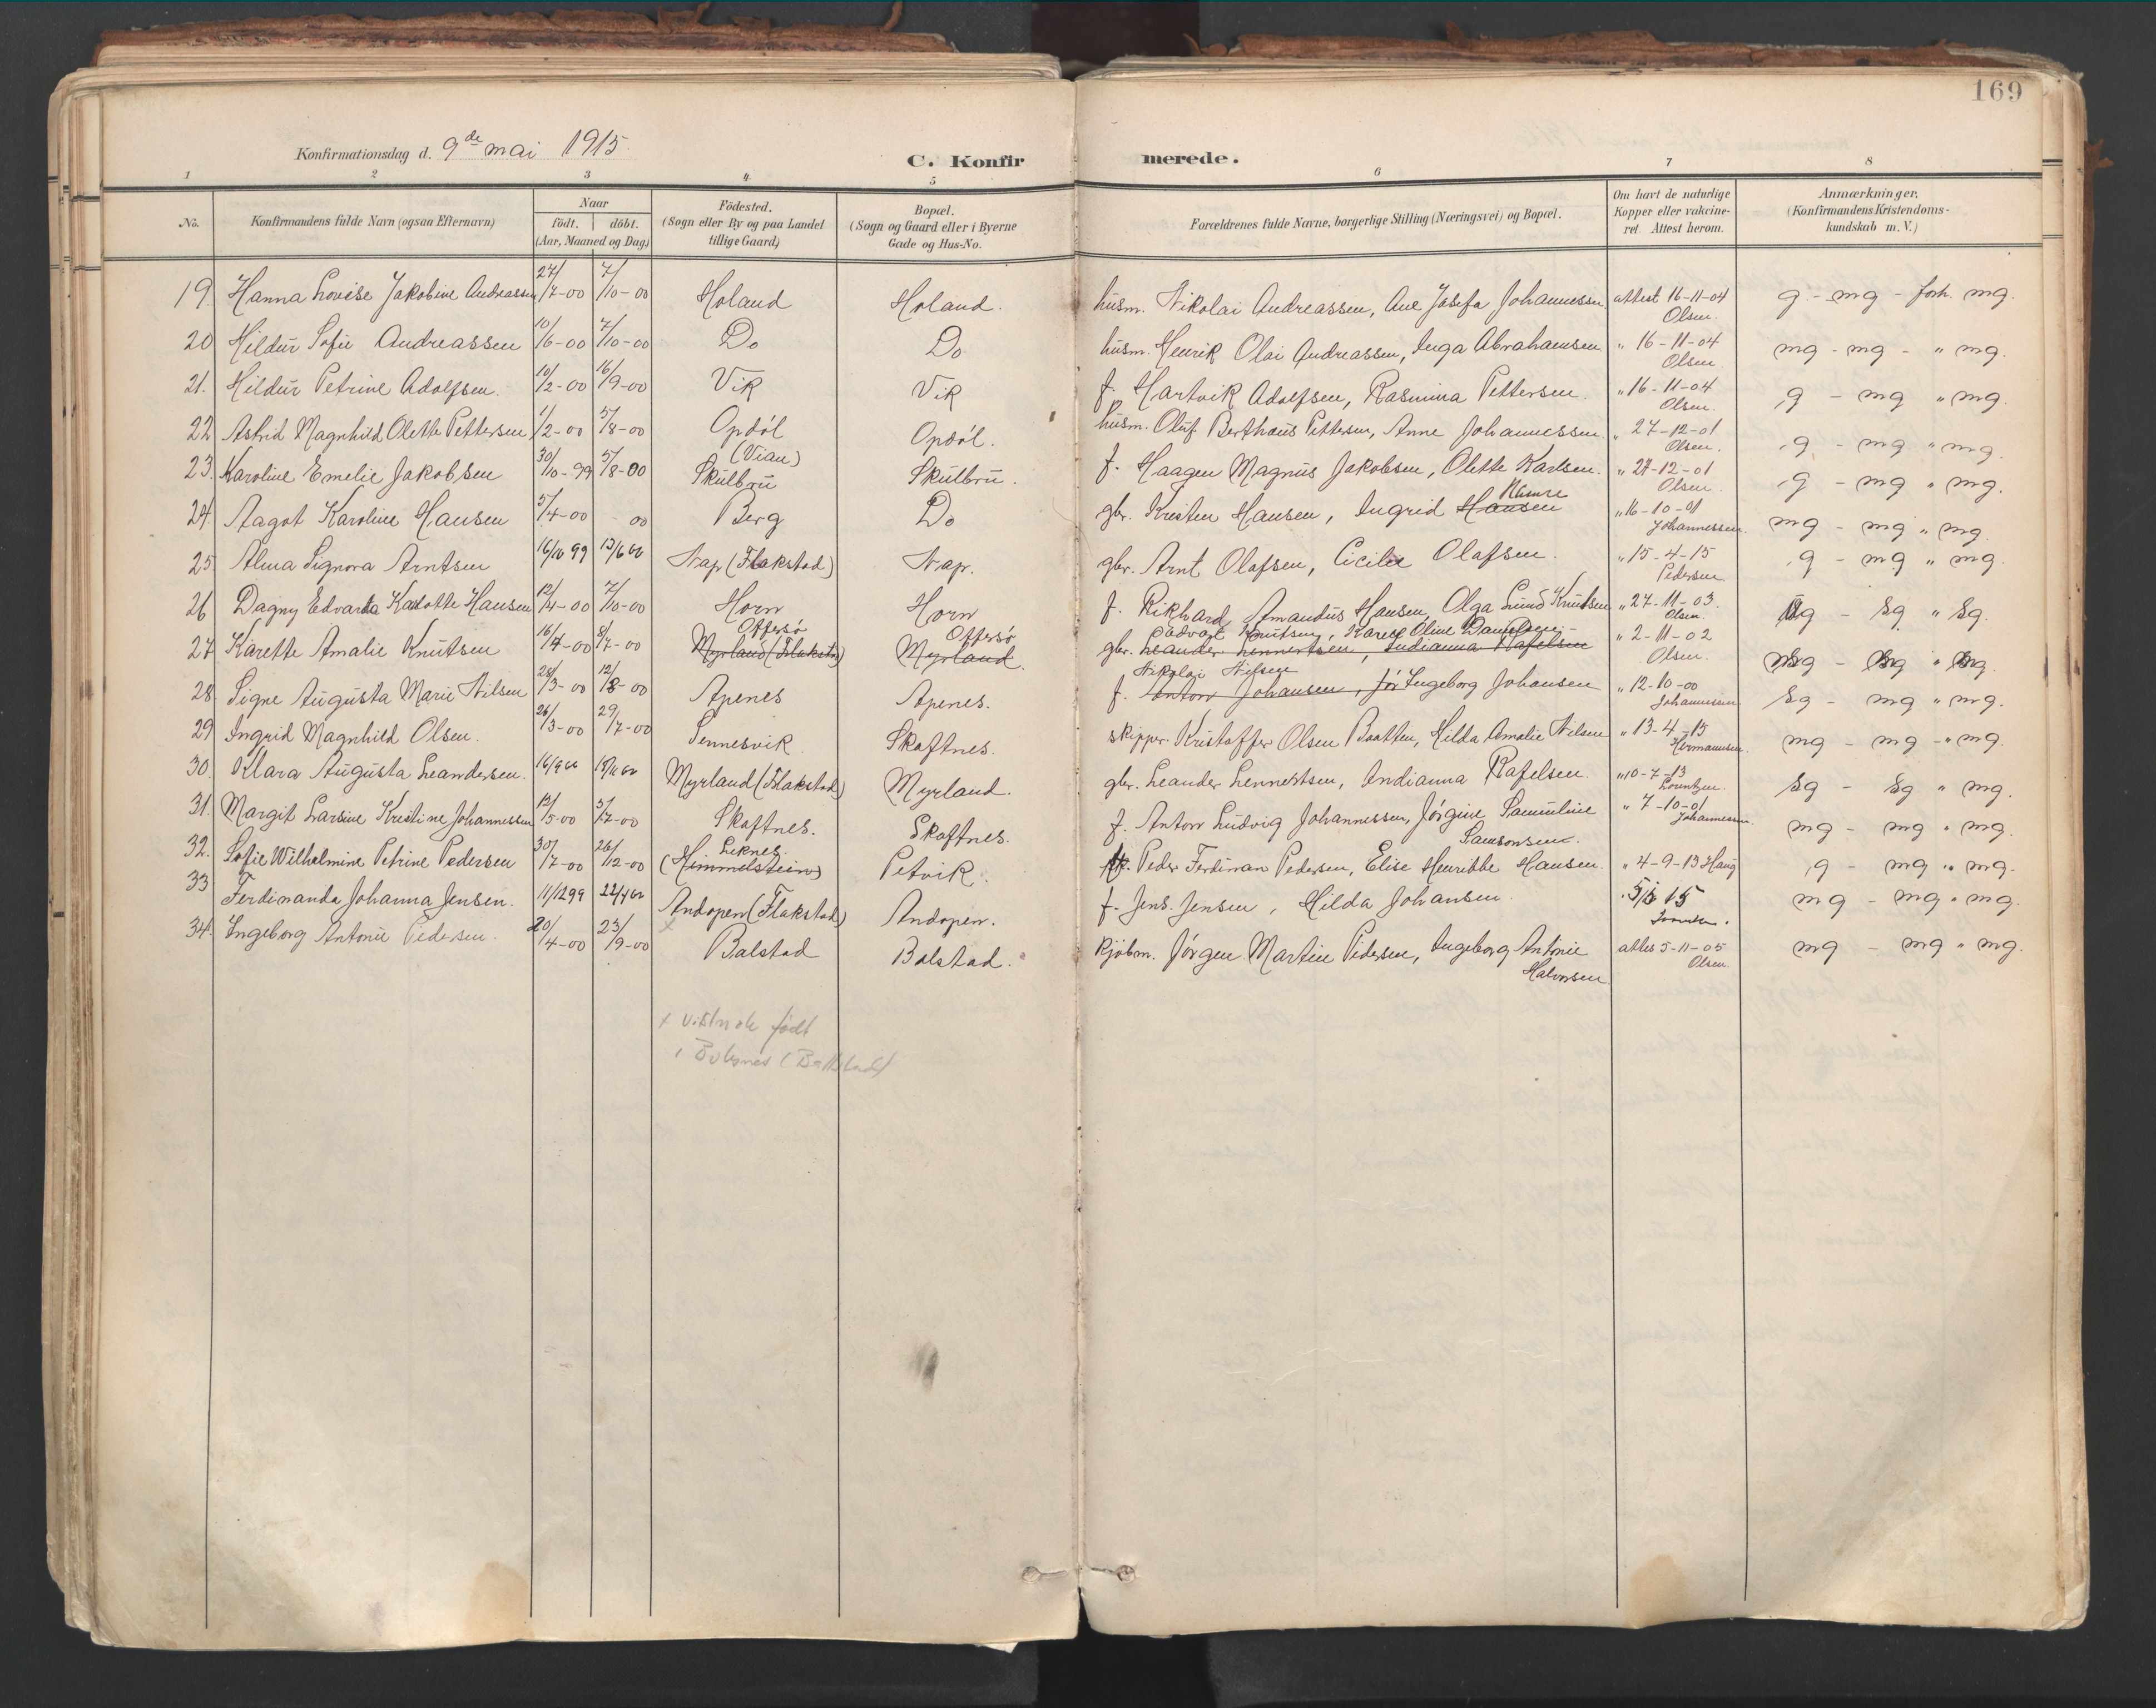 169
Konfirmationsdag d. 9de mai 1915
C. Konfirmerede.
1 2 3 4 5 6 7 8
No. Konfirmandens fulde Navn (ogsaa Efternavn) Naar födt. döbt. (Aar, Maaned og Dag) Födested. (Sogn eller By og paa Landet tillige Gaard) Bopæl. (Sogn og Gaard eller i Byerne Gade og Hus-No. Forældrenes fulde Navne, borgerlige Stilling (Næringsvei) og Bopæl. Om havt de naturlige Kopper eller vakcineret Attest herom. Anmærkninger. (Konfirmandens Kristendomskundskab m. V.)
19. Hanna Lovise Jakobine Andreassen 27/7-00 7/10-00 Holand Holand. husm. Nikolai Andreassen, Ane Josefa Johannessen attest 16-11-04 Olsen. g. - mg - forh. mg.
20 Hildur Sofie Andreassen 10/6-00 7/10-00 Do Do husm. Henrik Olai Andreassen, Inga Abrahamsen " 16-11-04 Olsen mg - mg - " mg.
21. Hildur Petrine Adolfsen. 10/2-00 16/9-00 Vik Vik f. Hartvik Adolfsen, Rasmina Pettersen. " 16-11-04 Olsen. g - mg " mg.
22 Astrid Magnhild Olette Pettersen 1/2-00 5/8-00 Opdöl (Vian) Opdöl. husm. Oluf Berthæus Pettersen, Anne Johannessen. " 27-12-01 Olsen. g - mg " mg.
23. Karoline Emelie Jakobsen 30/10-99 5/8-00 Skulbru Skulbru. f. Haagen Magnus Jakobsen, Olette Karlsen. " 27-12-01 Olsen g - mg " mg.
24. Aagot Karoline Hansen 5/4-00 00 Berg Do gbr. Kristen Hansen, Ingrid Hansen " 16-10-01 Johannessen. mg - mg " mg.
25 Alma Signora Arntsen 16/10 99 13/6 00 Nap (Flakstad) Nap. gbr. Arnt Olafsen, Cicilie Olafsen. " 15-4-15 Pedersen g - mg " mg
26 Dagny Edvarda Karlotte Hansen 12/4-00 7/10-00 Horn Horn f. Rikhard Amandus Hansen, Olga Lund Knutsen " 27-11-03. Olsen. - Sg " Sg.
27 Karette Amalie Knutsen 16/4-00 8/7-00 Offersö Myrland (Flakstad) Offersö Myrland. Edvart Knutsen, Karen Oline Danielsen gbr. Leander Lennertsen, Indianna Rafelsen " 2-11-02 Olsen
28 Signe Augusta Marie Nilsen 28/3-00 12/8-00 Apenes Apenes. Nikolai Nilsen f. Anton Johansen, Jör Ingeborg Johansen " 12-10-00 Johannessen Sg - mg " mg.
29 Ingrid Magnhild Olsen. 26/3-00 29/7-00 Sennesvik. Skaftnes. skipper. Kristoffer Olsen Baatten, Hilda Amalie Nilsen " 13-4-15 Hermannsen. mg - mg - " mg.
30. Klara Augusta Leandersen. 16/9 00 18/11 00 Myrland (Flakstad) Myrland. gbr. Leander Lennertsen, Indianna Rafelsen. " 10-7-13 Lorentzen. Sg - Sg " mg.
31. Margit Larsine Kristine Johannessen 13/5-00 5/7-00 Skaftnes. Skaftnes. f. Anton Ludvig Johannessen, Jörgine Samuline Samsonsen. " 7-10-01 Johannessen mg - mg " mg.
32. Sofie Wilhelmine Petrine Pedersen 30/7-00 26/12-00 Leknes. (Himmelstein) Petvik. Peder Ferdinan Pedersen, Elise Henrikke Hansen. " 4-9-13 Haug g - mg " mg.
33 Ferdinanda Johanna Jensen. 11/12 99 22/4 00 Andopen (Flakstad) Andopen. f. Jens Jensen, Hilda Johansen. 15 mg - mg " mg.
34. Ingeborg Antonie Pedersen. 20/4-00 23/9-00 x Balstad Balstad. kjöbm. Jörgen Martin Pedersen, Ingeborg Antonie Halvorsen attes 5-11-05 Olsen mg - mg " mg.
x vistnok födt
i (Balstad)